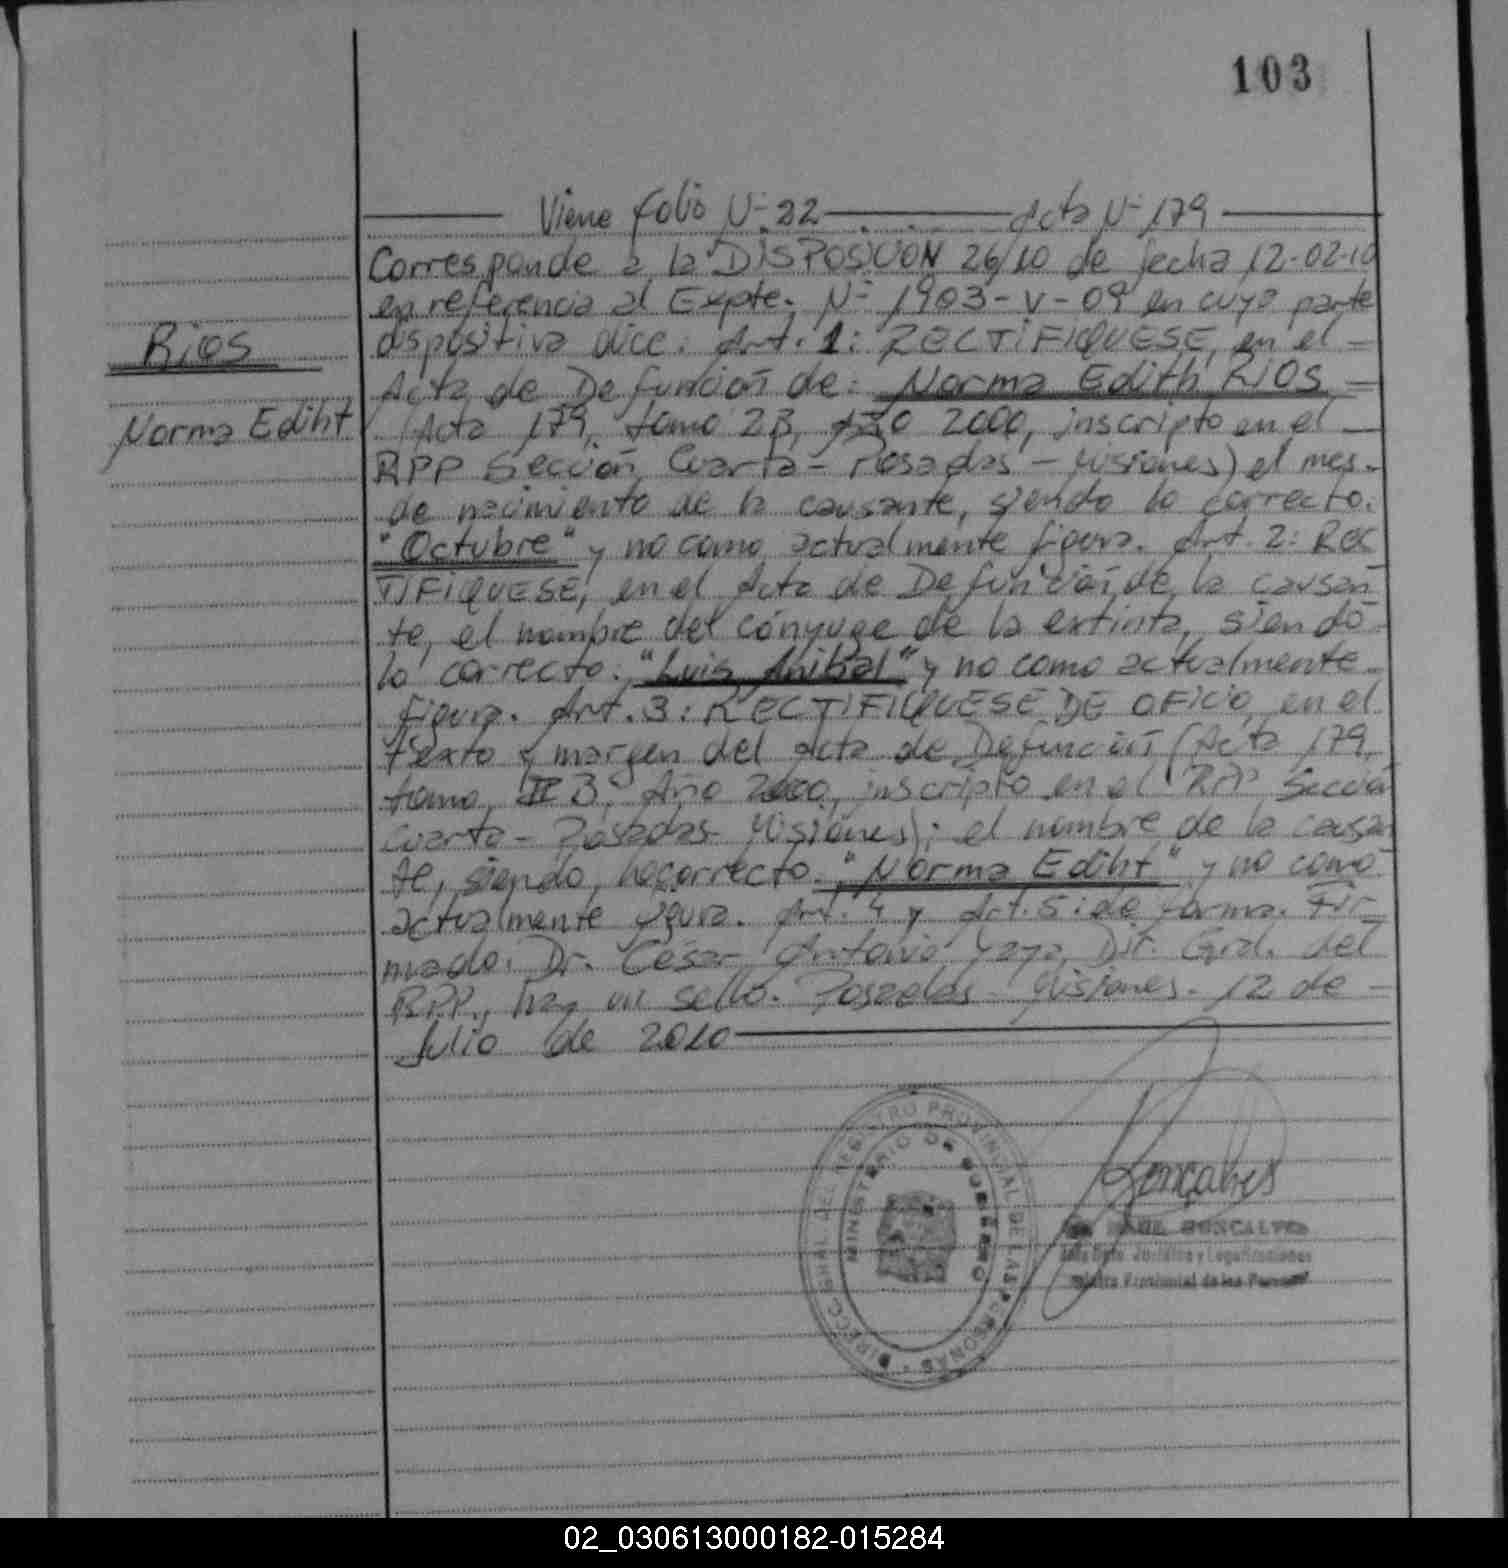 103
Viene folio N° 22 Acta N° 179
Corresponde a la DISPOSICION 26/10 de fecha 12-02-10
en referencia al Expte. N° 1903-V-09 en cuya parte
dispositiva dice: Art. 1: RECTIFIQUESE, en el
Rios
Acta de Defunción de: Norma Edith Rios
Norma Ediht
(Acta 179, tomo 2B, año 2000, inscripto en el
RPP Sección Cuarta - Posadas - Misiones) el mes
de nacimiento de la causante, siendo lo correcto:
"Octubre" y no como actualmente figura. Art. 2: REC
TIFIQUESE, en el Acta de Defunción de la causan
te, el nombre del cónyuge de la extinta, siendo
lo correcto: "Luis Anibal" y no como actualmente
figura. Art. 3: RECTIFIQUESE DE OFICIO, en el
texto y margen del acta de Defunción (Acta 179,
tomo II B, Año 2000, inscripto en el RPP Sección
Cuarta - Posadas - Misiones); el nombre de la causan
te, siendo lo correcto: "Norma Ediht" y no como
actualmente figura. Art. 4 y Art. 5: de forma. Fir
mado: Dr. César Antonio Yaya, Dir. Gral. del
RPP., hay un sello. Posadas - Misiones. 12 de
Julio de 2010
DIRECC. GRAL. DEL REGISTRO PROVINCIAL DE LAS PERSONAS
MINISTERIO DE GOBIERNO
Goncalves
GONCALVES
Jurídico y Legalizaciones
Provincial de las Personas
02_030613000182-015284